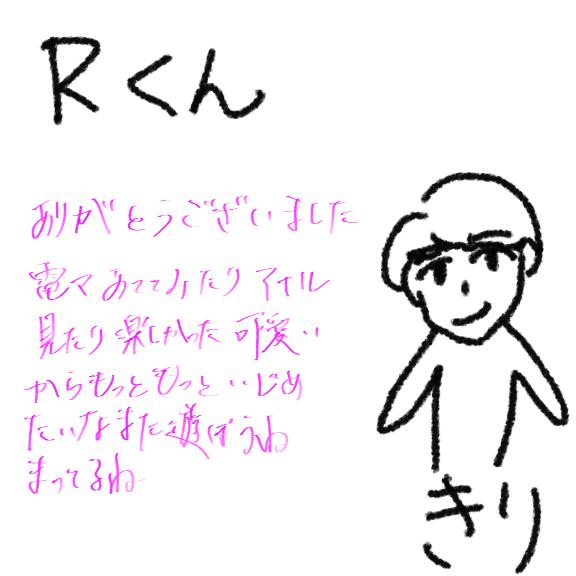 Rくん
ありがとうございました
電マあててみたりアナル
見たり楽しかった可愛い
からもっともっといじめ
たいなまた遊ぼうね
まってるね
きり